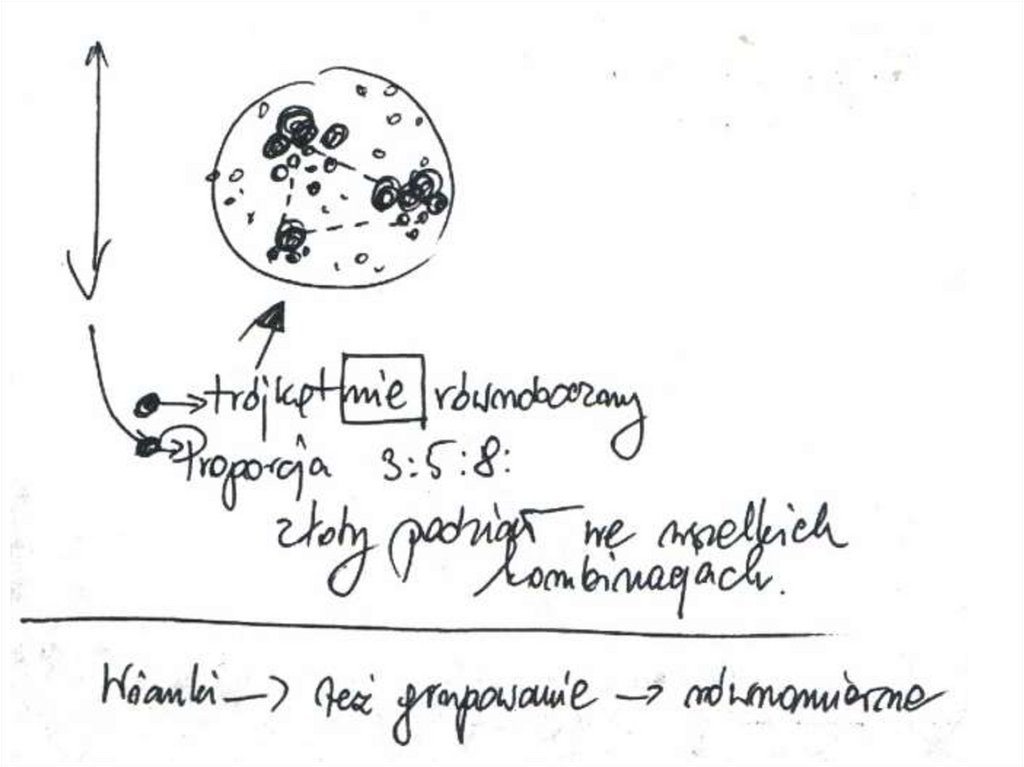 trójkąt nie równoboczny
Proporcja 3:5:8:
złoty podział we wszelkich
kombinacjach.
Wianki → też grupowanie → równomierne